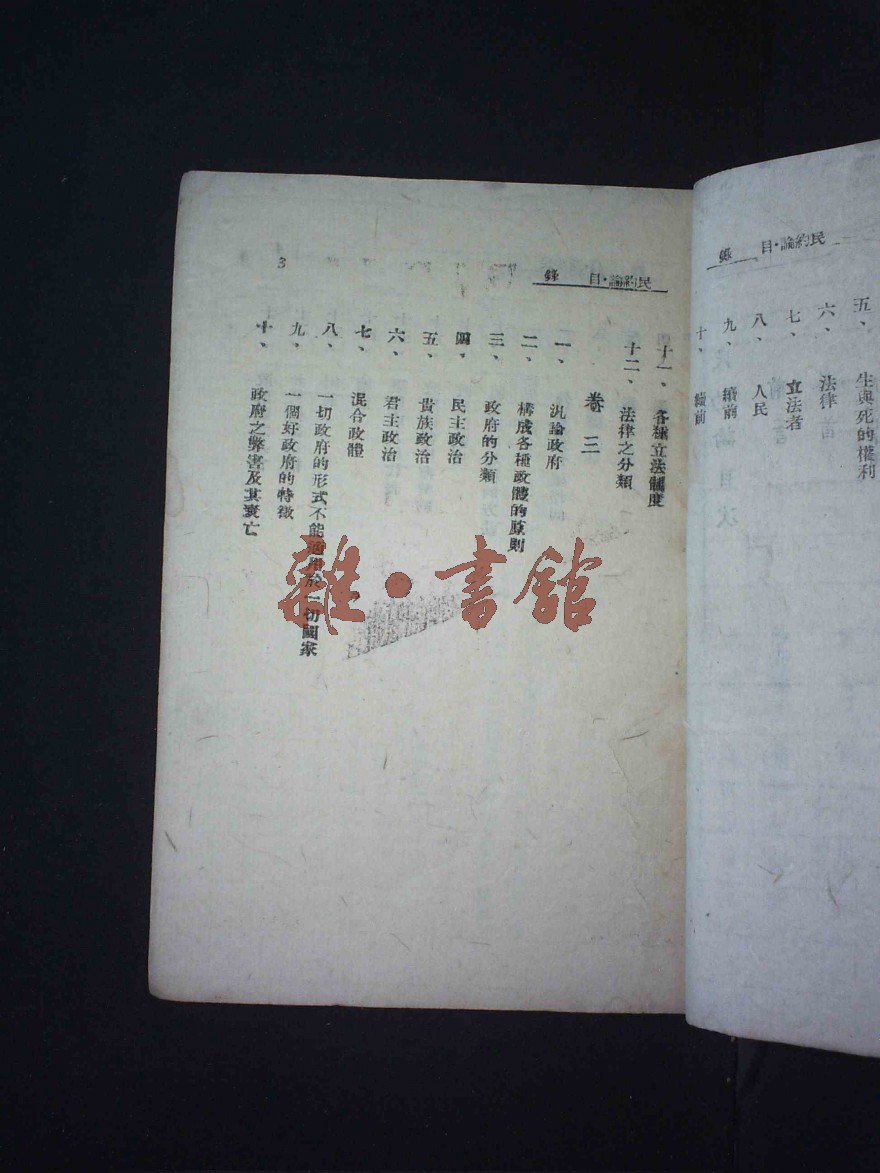 民約論·目錄
五、 生與死的權利
六、 法律
七、 立法者
八、 人民
九、 續前
十、 續前
民約論·目錄
十一、 各種立法制度
十二、 法律之分類
卷三
一、 汎論政府
二、 構成各種政體的原則
三、 政府的分類
四、 民主政治
五、 貴族政治
六、 君主政治
七、 混合政體
八、 一切政府的形式不能適用於一切國家
九、 一個好政府的特徵
十、 政府之弊害及其衰亡
3
雜·書館